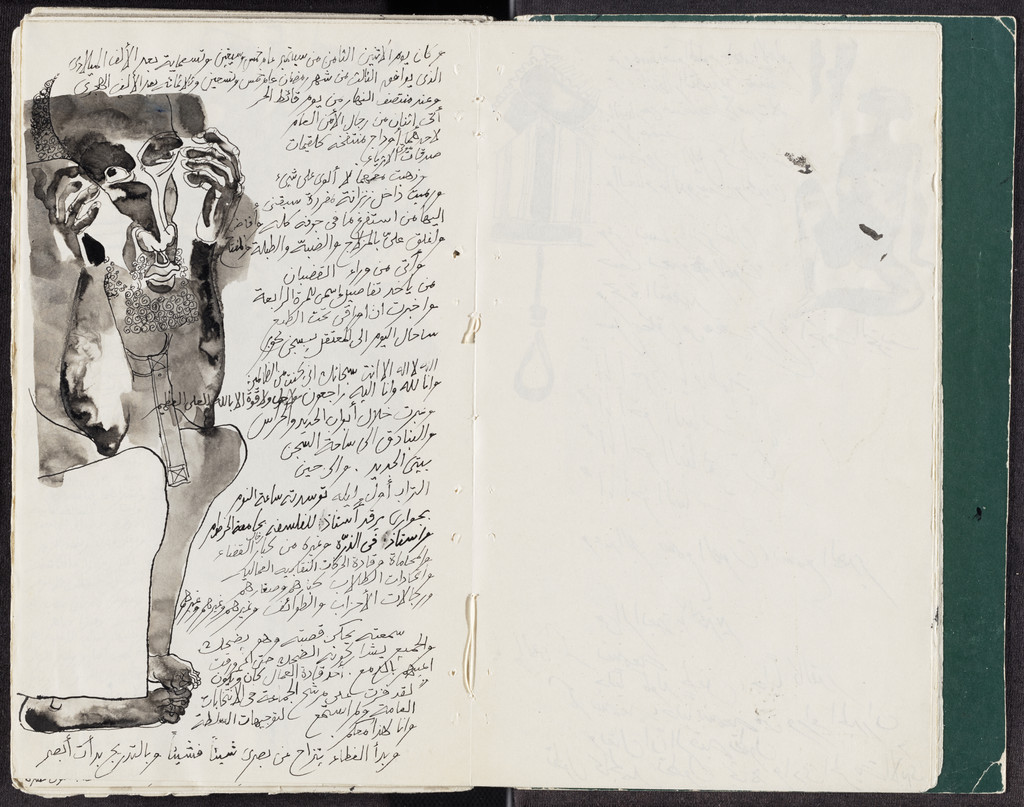 وكان يوم الاثنين الثامن من سبتمبر عام خمس وسبعين وتسعماية بعد الألف الميلادي
الذي يوافق الثالث من شهر رمضان عام خمس وتسعين وثلاثمائة بعد الألف الهجري
وعند منتصف النهار من يوم قائظ الحر
أتى اثنان من رجال الأمن العام
لأحدهما أوداج منتفخة كالقيمات
صدقات
وذهبت معهما لا ألوى على شيء
ورميت داخل زنزانة مفردة سبقني
اليها من استفرغ ما في جوفه كله
واغلق علىّ بالمزلاج والضبة والطبلة
وأتى من وراء القضبان
من يأخذ تفاصيل اسمي للمرة الرابعة
واخبرت ان اوراقي تحت الطبع
سأحال اليوم الى المعتقل بسجن
الله لا اله الا انت سبحانك اني كنت من الظالمين
وانا لله وانا اليه راجعون ولا حول ولا قوة الا بالله العلي العظيم
وعبرت خلال أبواب الحديد والحراس
والبنادق الى ساحة السجن
بيتي الجديد . والى حين
التراب أول ليلة توسدته ساعة النوم
بجواري يرقد أستاذ للفلسفة بجامعة الخرطوم
وأستاذ في الذرّة وغيره من كبار القضاء
والمحاماة وقادة الحركات النقابية العمالية
واتحادات الطلاب كبارهم وصغارهم
ورجالات الأحزاب والطوائف وغيرهم وغيرهم وغيرهم
سمعته يحكى قصته وهو يضحك
والجميع يشاركونه الضحك حتى اغرورقت
اعينهم بالدمع . أحد قادة العمال كان ويكون
"لقد فزت على مرشح الجمعة في الانتخابات
العامة ولم استمع لتوجيهات السلطة
وانا هذا معكم"
وبدأ الغطاء ينزاح عن بصري شيئاً فشيئاً وبالتدريج بدأت أبصر